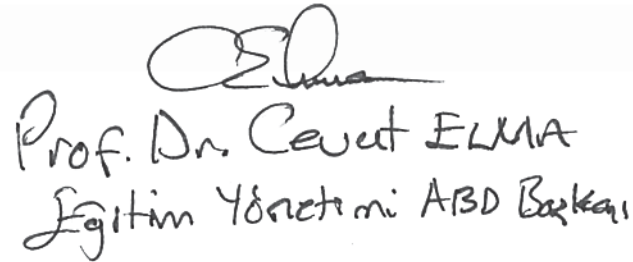 Prof. Dr. Cevat ELMA
Eğitim Yönetimi ABD Başkanı